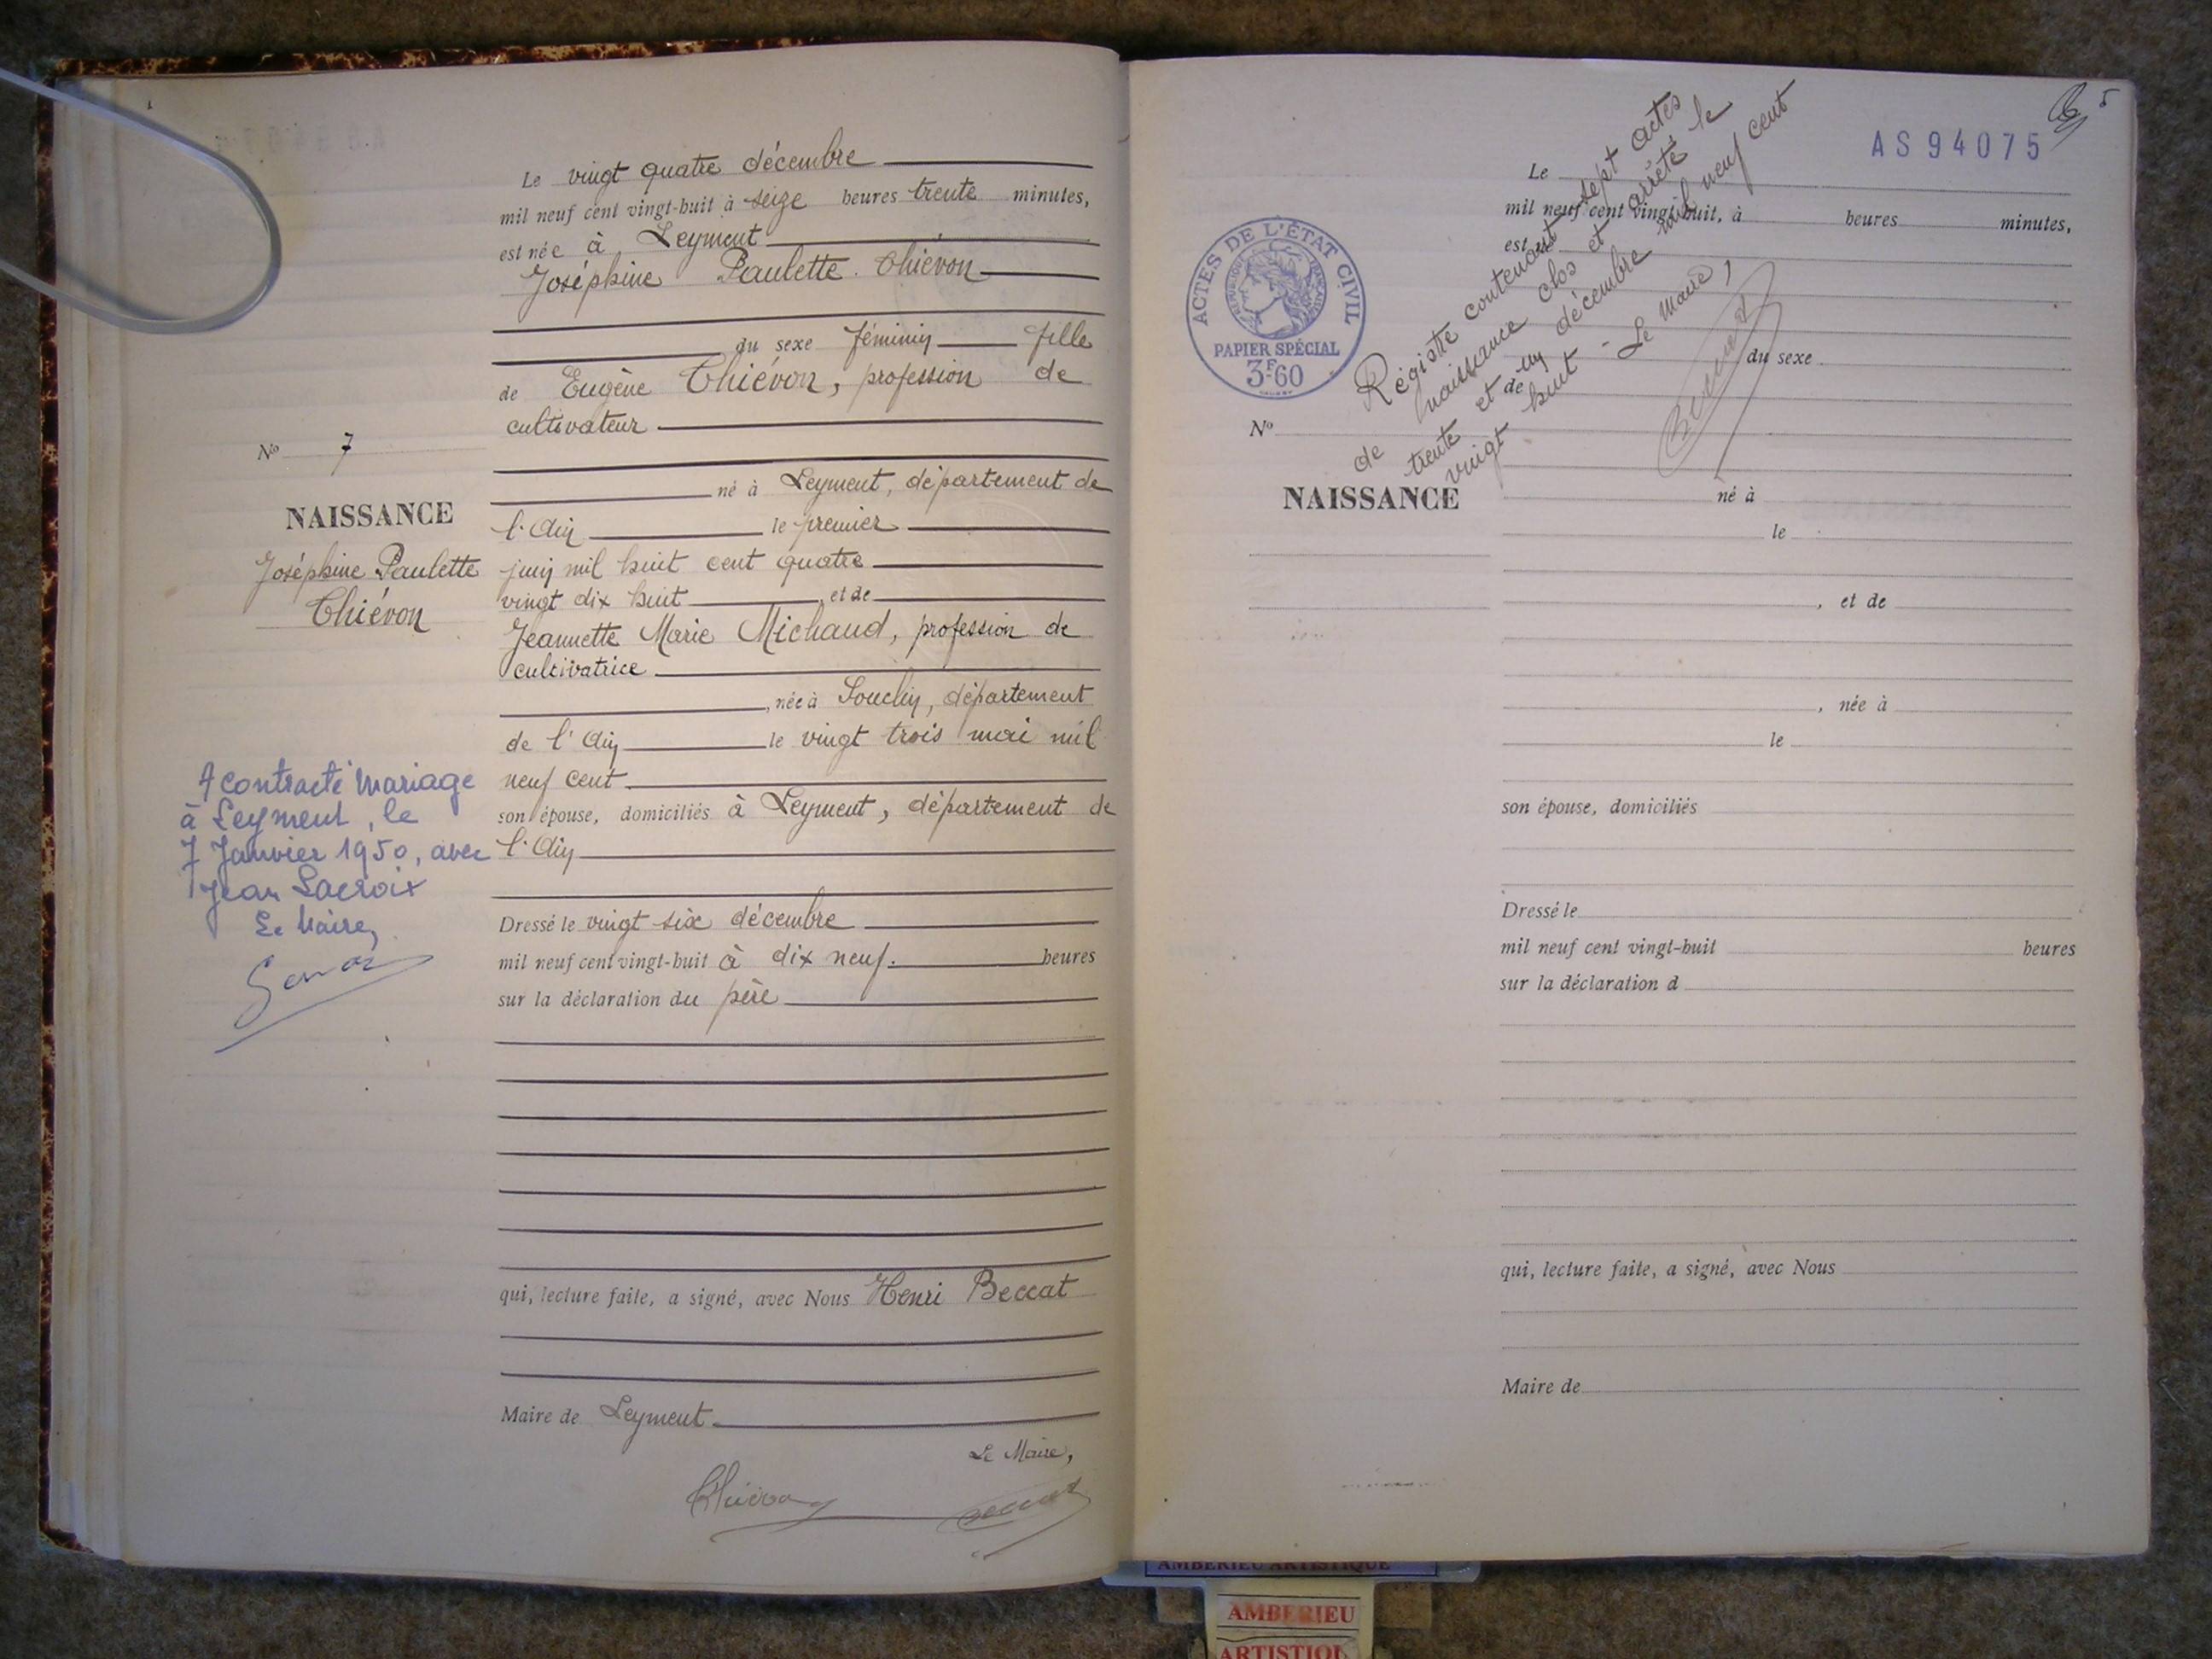 Le vingt quatre décembre
mil neuf cent vingt-huit à seize heures trente minutes,
est née à Leyment
Joséphine Paulette Thiévon
du sexe féminin fille
de Eugène Thiévon, profession de
cultivateur
né à Leyment, département de
l'Ain le premier
juin mil huit cent quatre
vingt dix huit et de
Jeannette Marie Michaud, profession de
cultivatrice
, née à Souclin, département
de l'Ain le vingt trois mai mil
neuf cent
son épouse, domiciliés à Leyment, département de
l'Ain
Dressé le vingt six décembre
mil neuf cent vingt-huit à dix neuf. heures
sur la déclaration du père
qui, lecture faite, a signé, avec Nous Henri Beccat
Maire de Leyment
Le Maire,
Thiévon
No 7
NAISSANCE
Joséphine Paulette
Thiévon
A contracté Mariage
à Leyment, le
7 Janvier 1950, avec
Jean Lacroix
Le Maire,
5
AS94075
ACTES DE L'ÉTAT CIVIL
RÉPUBLIQUE FRANÇAISE
PAPIER SPÉCIAL
3F60
Registre contenant sept actes
de naissance clos et arrêté le
trente et un décembre mil neuf cent
vingt huit - Le Maire,
No
NAISSANCE
Le
mil neuf cent vingt-huit, à heures minutes,
est
du sexe
de
né à
le
, et de
, née à
le
son épouse, domiciliés
Dressé le
mil neuf cent vingt-huit heures
sur la déclaration d
qui, lecture faite, a signé, avec Nous
Maire de
AMBERIEU ARTISTIQUE
AMBERIEU
ARTISTIQU